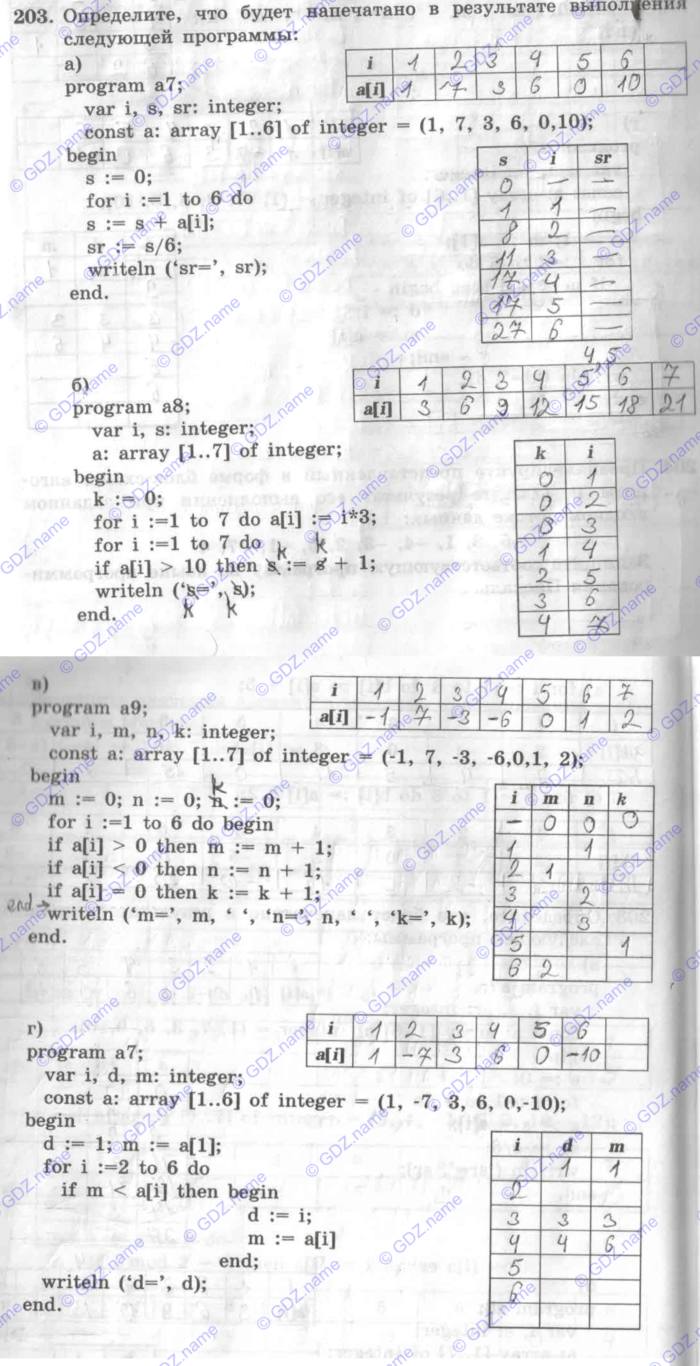 203. Определите, что будет напечатано в результате выполнения
следующей программы:
а)
i 1 2 3 4 5 6
a[i] 1 7 3 6 0 10
program a7;
var i, s, sr: integer;
const a: array [1..6] of integer = (1, 7, 3, 6, 0,10);
begin
s := 0;
for i :=1 to 6 do
s := s + a[i];
sr := s/6;
writeln (‘sr=’, sr);
end.
s i sr
0 — —
1 1 —
8 2 —
11 3 —
17 4 —
17 5
27 6
4,5
б)
i 1 2 3 4 5 6 7
a[i] 3 6 9 12 15 18 21
program a8;
var i, s: integer;
a: array [1..7] of integer;
begin
k := 0;
for i :=1 to 7 do a[i] := i*3;
for i :=1 to 7 do
k k
if a[i] > 10 then s := s + 1;
writeln (‘s=’, s);
k k
end.
k i
0 1
0 2
0 3
1 4
2 5
3 6
4 7
в)
i 1 2 3 4 5 6 7
a[i] -1 7 -3 -6 0 1 2
program a9;
var i, m, n, k: integer;
const a: array [1..7] of integer = (-1, 7, -3, -6,0,1, 2);
begin
k
m := 0; n := 0; n := 0;
for i :=1 to 6 do begin
if a[i] > 0 then m := m + 1;
if a[i] < 0 then n := n + 1;
if a[i] = 0 then k := k + 1;
end→
writeln (‘m=’, m, ‘ ‘, ‘n=’, n, ‘ ‘, ‘k=’, k);
end.
i m n k
— 0 0 0
1 1
2 1
3 2
4 3
5 1
6 2
г)
i 1 2 3 4 5 6
a[i] 1 -7 3 6 0 -10
program a7;
var i, d, m: integer;
const a: array [1..6] of integer = (1, -7, 3, 6, 0,-10);
begin
d := 1; m := a[1];
for i :=2 to 6 do
if m < a[i] then begin
d := i;
m := a[i]
end;
writeln (‘d=’, d);
end.
i d m
1 1
2
3 3 3
4 4 6
5
6
© GDZ.name